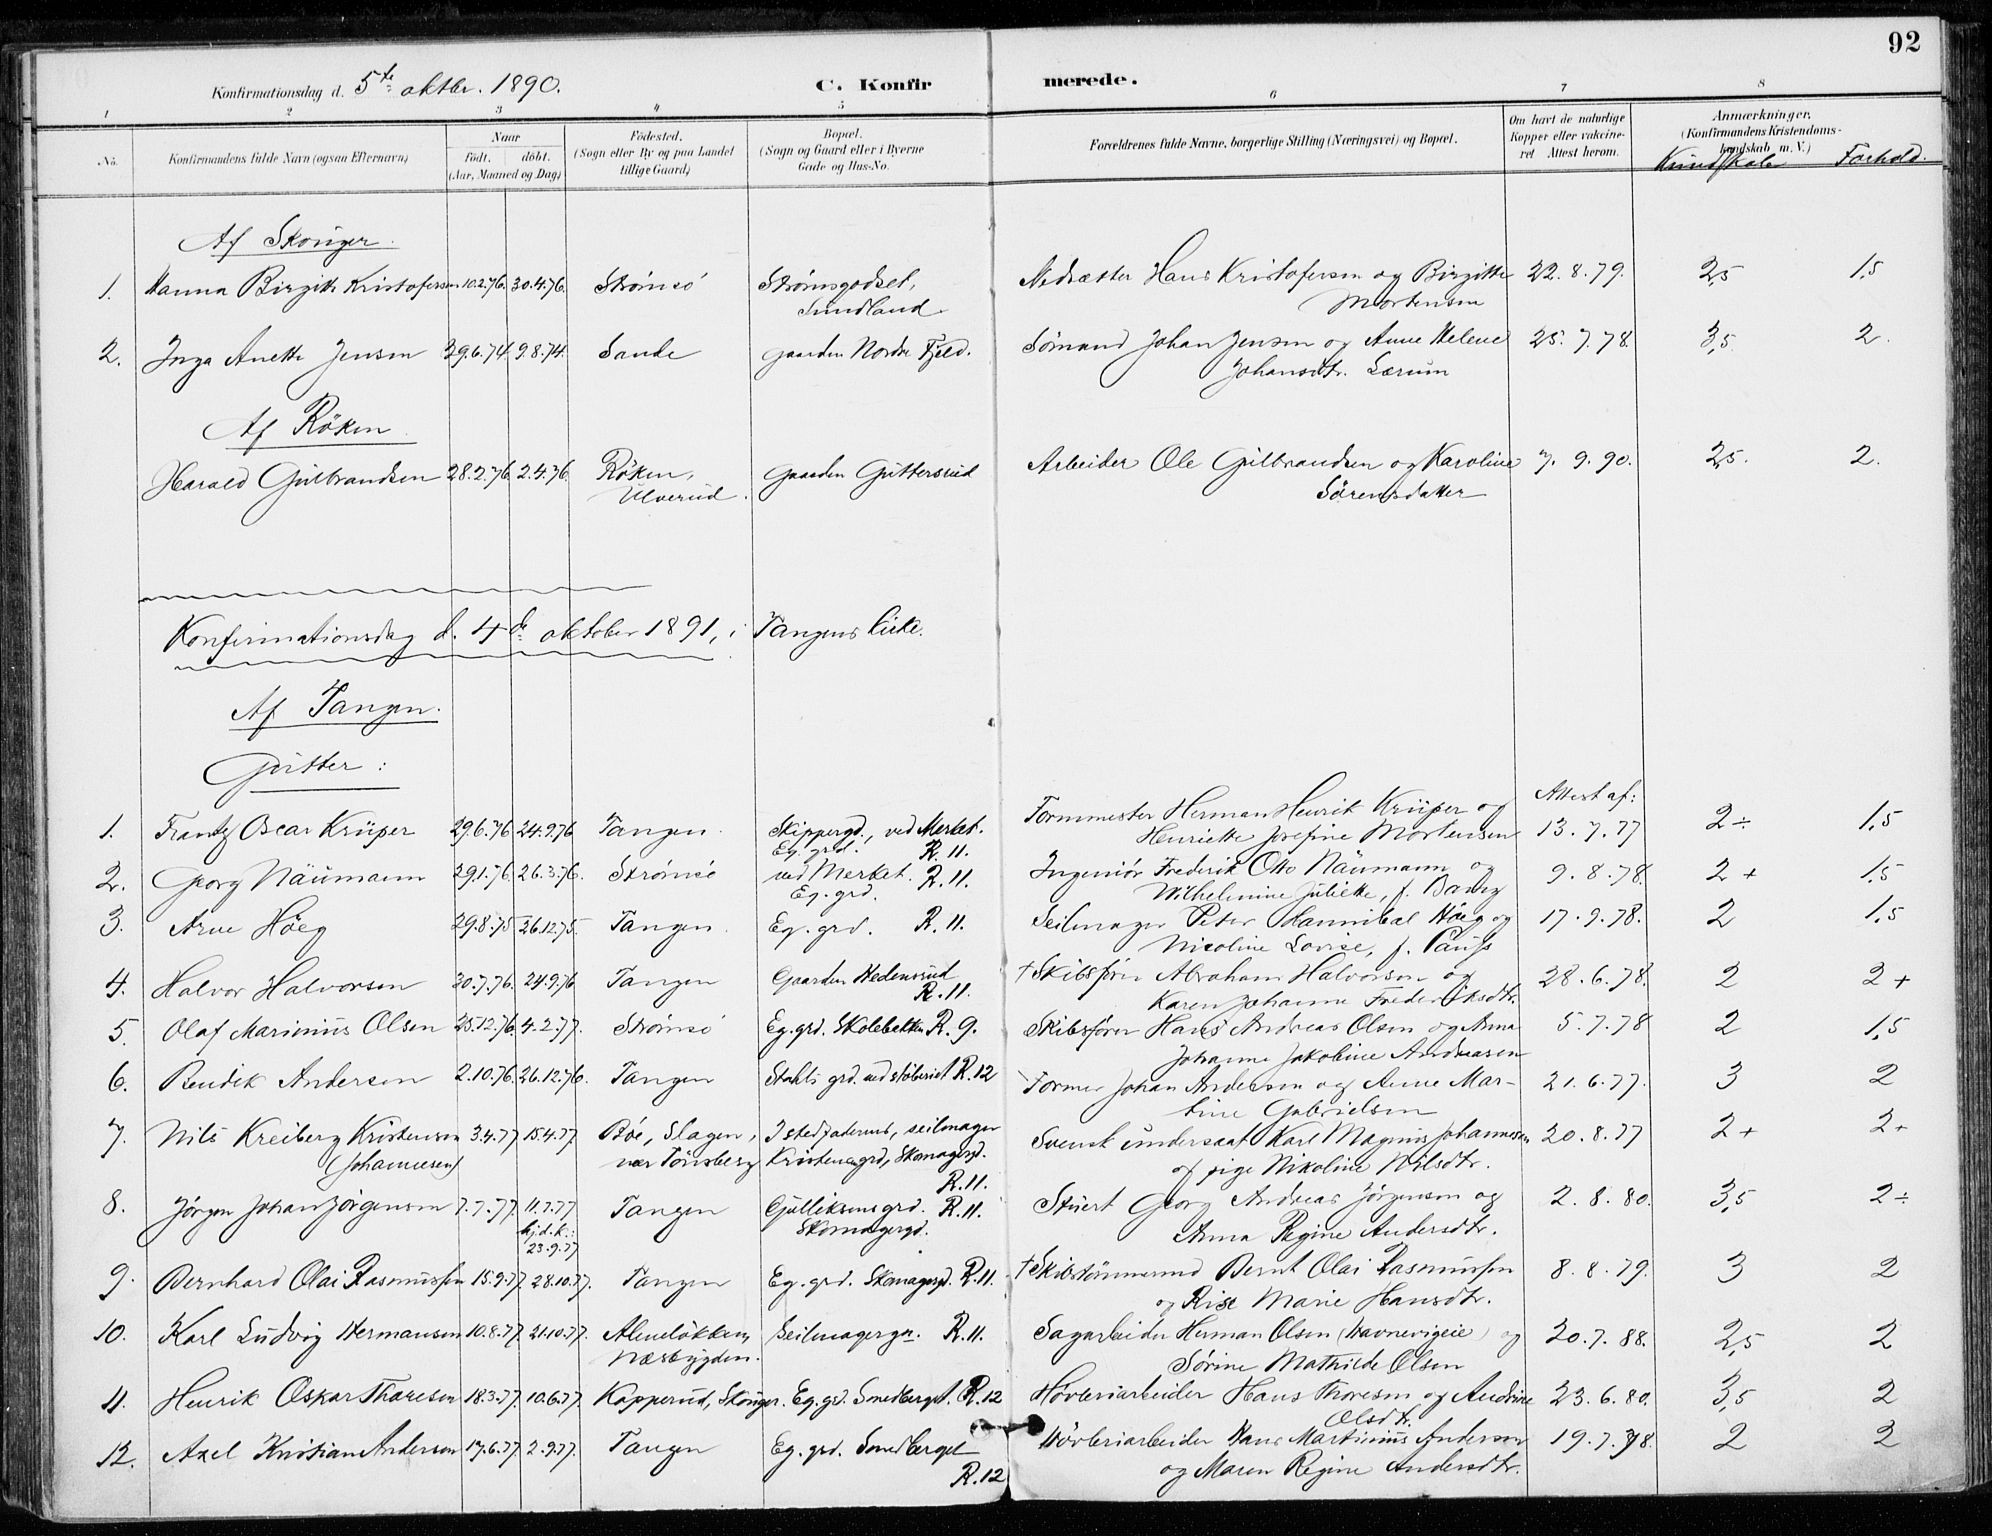 92
Konfirmationsdag d. 5te oktbr. 1890.
C. Konfirmerede.
1 2 3 4 5 6 7 8
No. Konfirmandens fulde Navn (ogsaa Efternavn) Naar födt. döbt. (Aar, Maaned og Dag) Födested. (Sogn eller By og paa Landet tillige Gaard) Bopæl. (Sogn og Gaard eller i Byerne Gade og Hus-No. Forældrenes fulde Navne, borgerlige Stilling (Næringsvei) og Bopæl. Om havt de naturlige Kopper eller vakcineret Attest herom. Anmærkninger, (Konfirmandens Kristendomskundskab m. V.) Kundskab Forhold.
Af Skouger.
1. Hanna Birgitte Kristofersen 10.2.76. 30.4.76. Strömsö Strömsgodset, Nedsætter Hans Kristofersen og Birgitte 22.8.79. 2,5 1,5
Sundland. Mortensen
2. Inga Anette Jensen 29.6.74 9.8.74. Sande gaarden Nordre Fjeld. Sömand Johan Jensen og Anne Helene 25.7.78. 3,5 2.
Johansdtr. Lærum
Af Röken
Harald Gulbrandsen 28.2.76. 2.4.76. Röken, gaarden Guttersrud Arbeider Ole Gulbrandsen og Karoline 7.9.90. 2,5. 2.
Ulverud. Sörensdatter
Konfirmationsdag d. 4de oktober 1891, i Tangens kirke.
Af Tangen.
Gutter:
Attest af:
1. Frantz Oscar Krüper 29.6.76 24.9.76 Tangen. Skippergd., ved Merket. Formmester Herman Henrik Krüper og 13.7.77 2÷ 1,5
Eg. grd. R.11. Henriette Josefine Mortensen
2. Georg Näumann 29.1.76. 26.3.76. Strömsö ved Merket. R.11. Ingeniör Frederik Otto Näumann og 9.8.78. 2+ 1,5
Eg. grd. Wilhelmine Juliette, f. Bang
3. Arne Höeg 29.8.75 26.12.75. Tangen. Eg. grd. R.11. Seilmager Peter Hannibal Höeg og 17.9.78. 2 1,5
Nicoline Lovise, f. Paus
4. Halvor Halvorsen 20.7.76. 24.9.76 Tangen Gaarden Hedensrud † Skibsförer Abraham Halvorsen og 28.6.78. 2 2+
R.11. Karen Johanne Frederiksdtr.
5. Olaf Marinius Olsen 25.12.76. 4.2.77. Strömsö Eg. grd. Skolebakken R.9. Skibsförer Hans Andreas Olsen og Anna 5.7.78 2 1,5
Johanne Jakobine Andreasen
6. Bendik Andersen 2.10.76. 26.12.76. Tangen Stahls grd. ved stöberiet R.12 Former Johan Andersen og Anne Mar- 21.6.77. 3 2
tine Gabrielsen
7. Nils Kreiberg Kristensen 3.4.77 15.4.77 Böe, Slagen, I stedfaderens, seilmager Svensk undersaat Karl Magnus Johannesen 20.8.77 2+ 2+
(Johannesen) nær Tönsberg Kristensen grd, Skomagergd. og pige Nikoline Nilsdtr.
R.11.
8. Jörgen Johan Jörgensen 7.7.77. 11.7.77 Tangen Gulliksens grd. R.11. Stuert Georg Andreas Jörgensen og 2.8.80. 3,5 2÷
hj.d. k.: 23.9.77 Skomagergd. Anna Regine Andersdtr.
9. Bernhard Olai Rasmussen 15.9.77. 28.10.77. Tangen Eg. grd. Skomagergd. R.11. † Skibstömmermd Bernt Olai Rasmussen 8.8.79. 3 2
og Rise Marie Hansdtr.
10. Karl Ludvig Hermansen 10.8.77 21.10.77. Alnelökken, Seilmagergn. R.11. Sagarbeider Herman Olsen (Havnevigeie) og 20.7.88. 2,5 2
Næsbygden. Sörine Mathilde Olsen
11. Henrik Oskar Thoresen 18.3.77. 10.6.77 Kopperud, Skouger. Eg. grd. Smedberget. R.12 Hövleriarbeider Hans Thoresen og Andrine 23.6.80. 3,5 2
Olsdtr.
12. Axel Kristian Andersen 17.6.77 2.9.77. Tangen Eg. grd. Smedberget Hövleriarbeider Hans Martinius Andersen 19.7.78. 2 2
R.12 og Maren Regine Andersdtr.